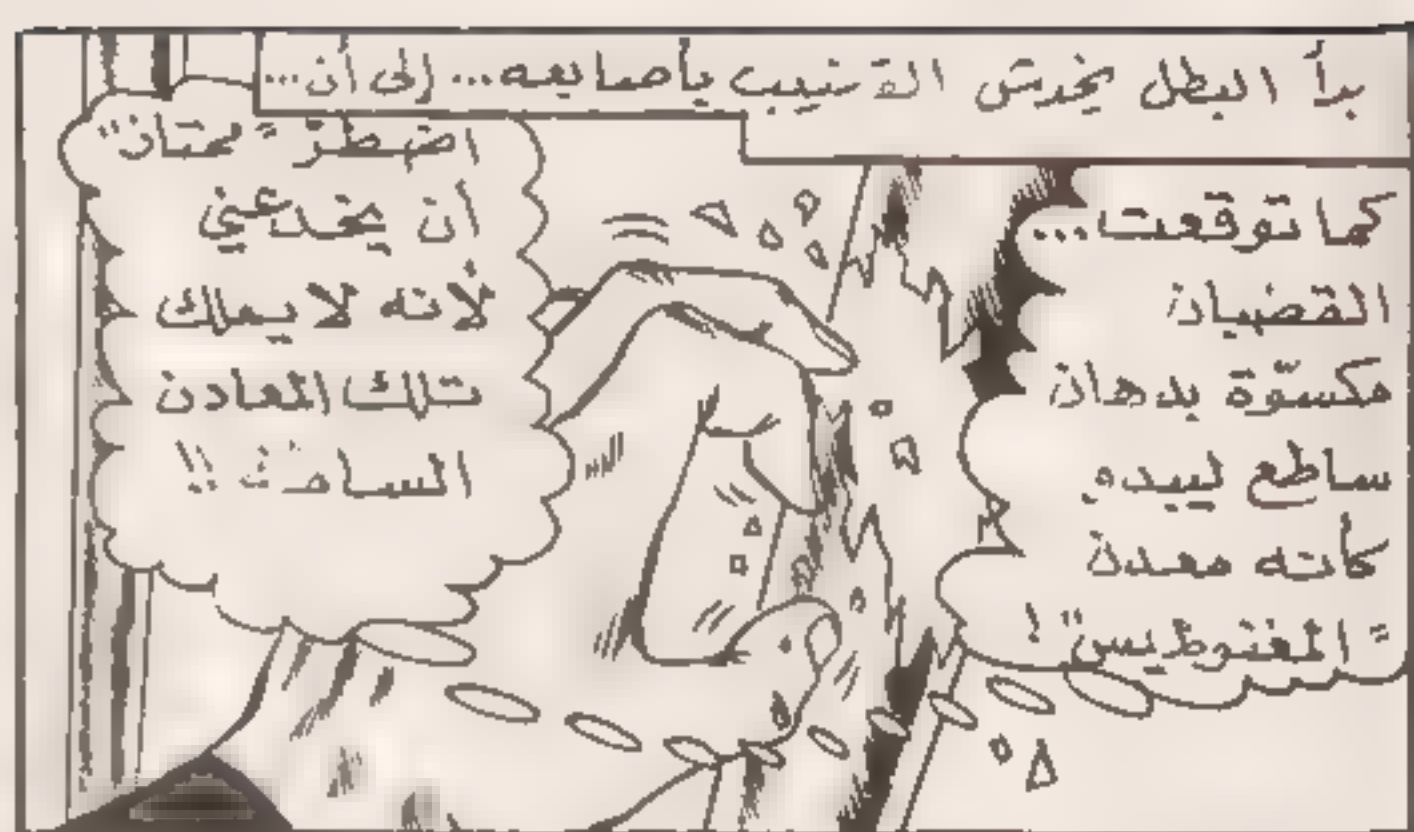 بدأ البطل يخدش القضيب بأصابعه... إلى أن...
كما توقعت...
القضبان
مكسوّة بدهان
ساطع ليبدو
كأنه معدن
"المغنوطيس"!
اضطرّ "محتان"
أن يخدعني
لأنه لا يملك
تلك المعادن
!!